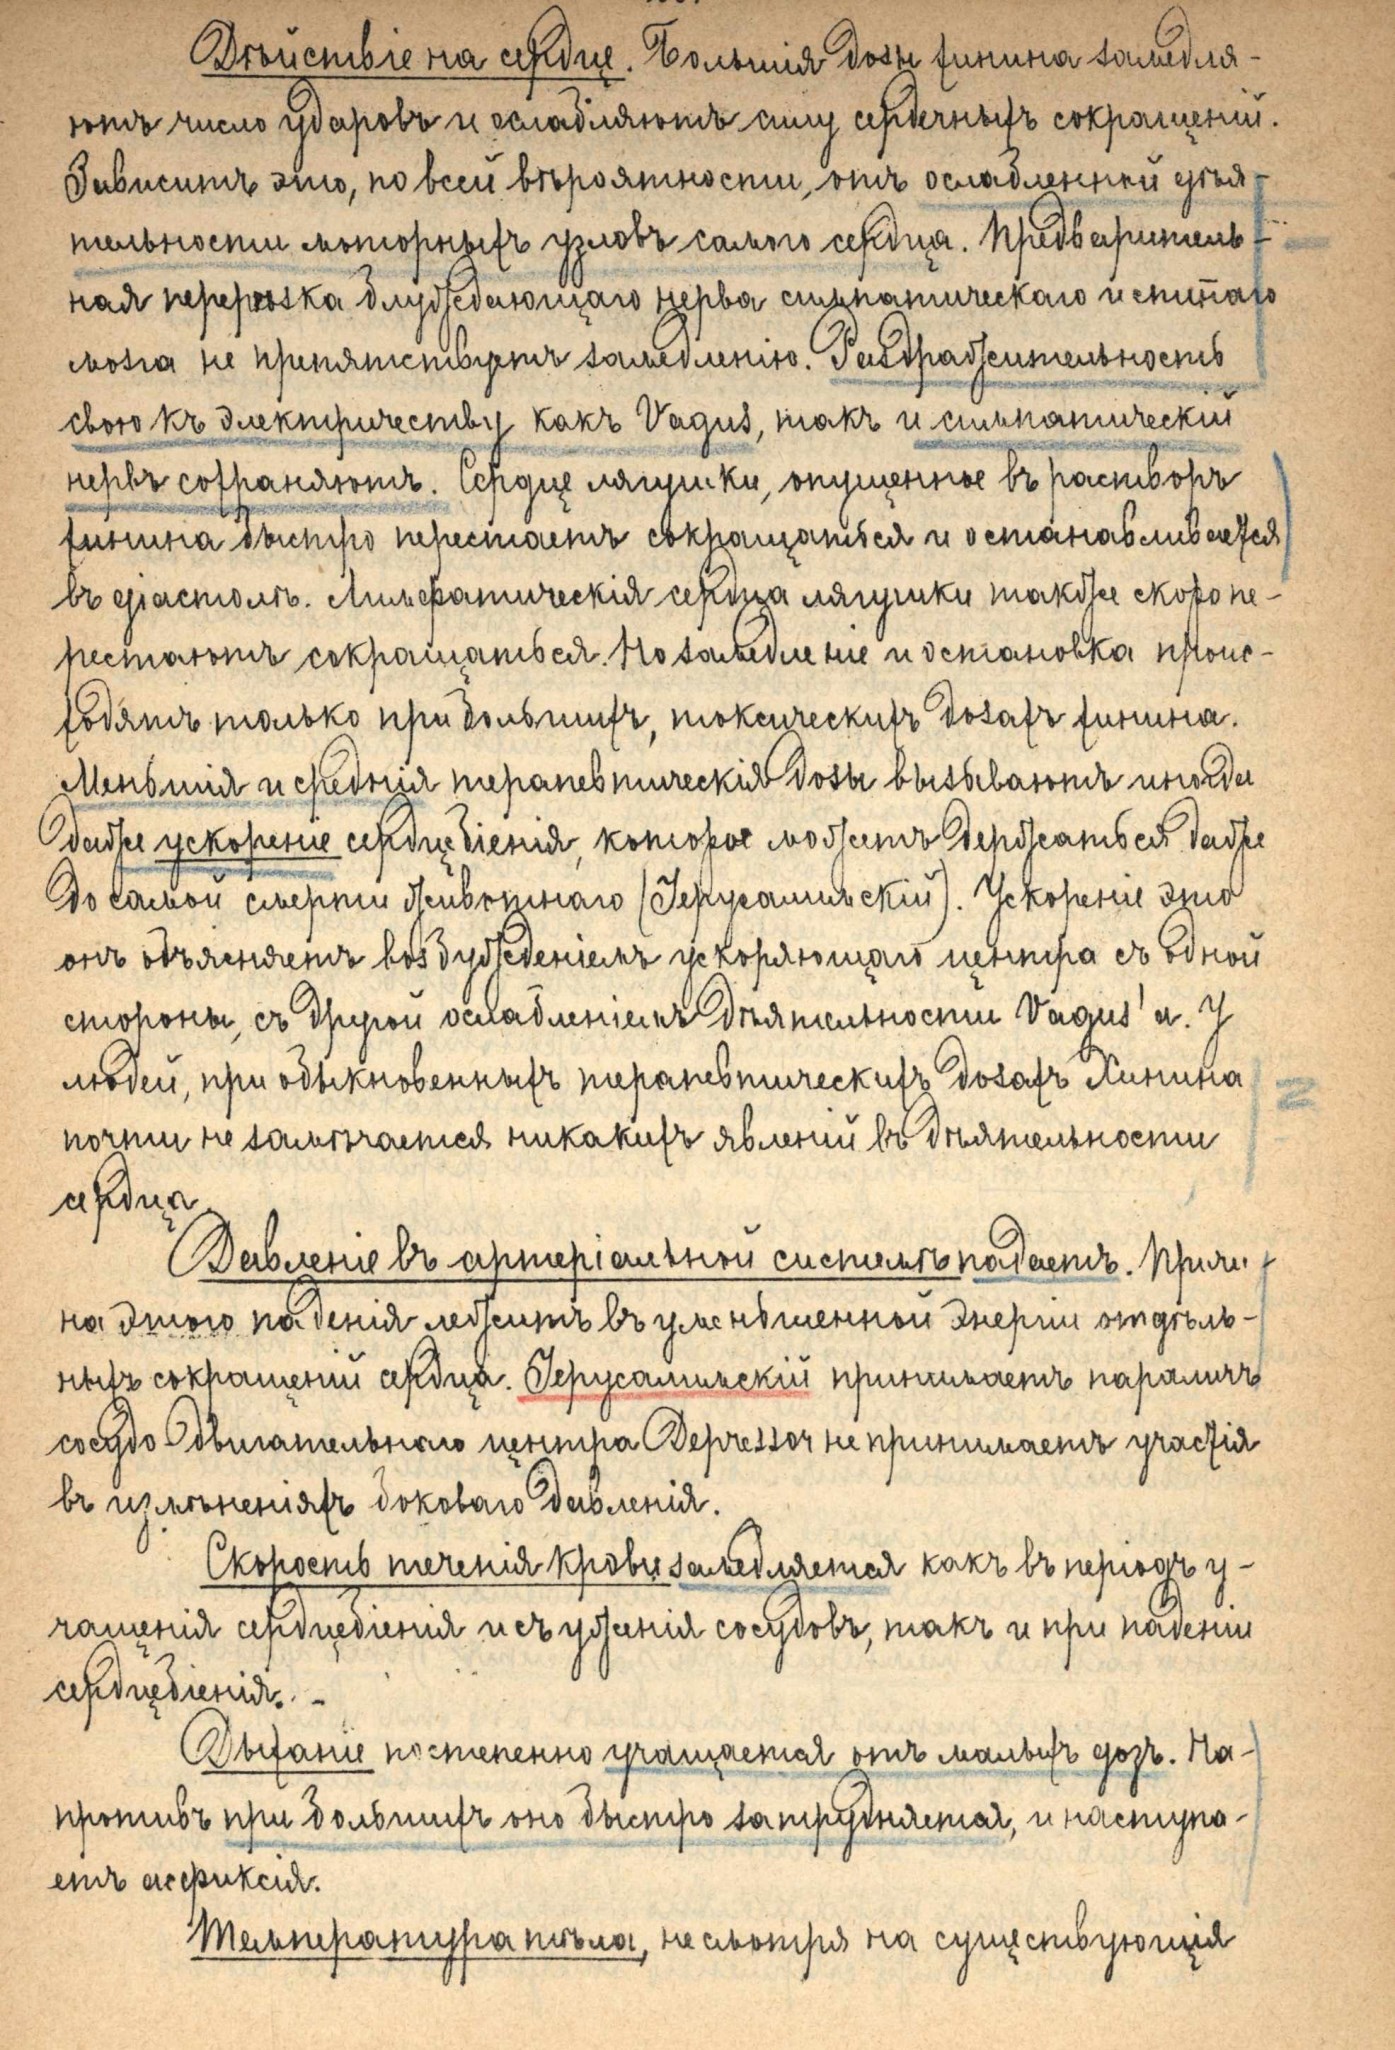 Дѣйствіе на сердце. Большія дозы хинина замедля-
ютъ число ударовъ и ослабляютъ силу сердечныхъ сокращеній.
Зависитъ это, по всей вѣроятности, отъ ослабленной дѣя-
тельности моторныхъ узловъ самого сердца. Предваритель-
ная перерѣзка блуждающаго нерва симпатическаго и спиннаго
мозга не препятствуетъ замедленію. Раздражительность
свою къ электричеству какъ Vagus, такъ и симпатическій
нервъ сохраняютъ. Сердце лягушки, опущенное въ растворъ
хинина быстро перестаетъ сокращаться и останавливается
въ діастолѣ. Лимфатическія сердца лягушки также скоро пе-
рестаютъ сокращаться. Но замедленіе и остановка проис-
ходятъ только при большихъ, токсическихъ дозахъ хинина.
Меньшія и среднія терапевтическія дозы вызываютъ иногда
даже ускореніе сердцебіенія, которое можетъ держаться даже
до самой смерти животнаго (Іерусалимскій). Ускореніе это
онъ объясняетъ возбужденіемъ ускоряющаго центра съ одной
стороны, съ другой ослабленіемъ дѣятельности Vagus'а. У
людей, при обыкновенныхъ терапевтическихъ дозахъ Хинина
почти не замѣчается никакихъ явленій въ дѣятельности
сердца.
Давленіе въ артеріальной системѣ падаетъ. Причи-
на этого паденія лежитъ въ уменьшенной энергіи отдѣль-
ныхъ сокращеній сердца. Іерусалимскій принимаетъ параличъ
сосудо-двигательнаго центра Depressor не принимаетъ участія
въ измѣненіяхъ боковаго давленія.
Скорость теченія крови замедляется какъ въ періодъ у-
чащенія сердцебіенія и съуженія сосудовъ, такъ и при паденіи
сердцебіенія. -
Дыханіе постепенно учащается отъ малыхъ дозъ. На-
противъ при большихъ оно быстро затрудняется, и наступа-
етъ асфиксія.
Температура тѣла, несмотря на существующія